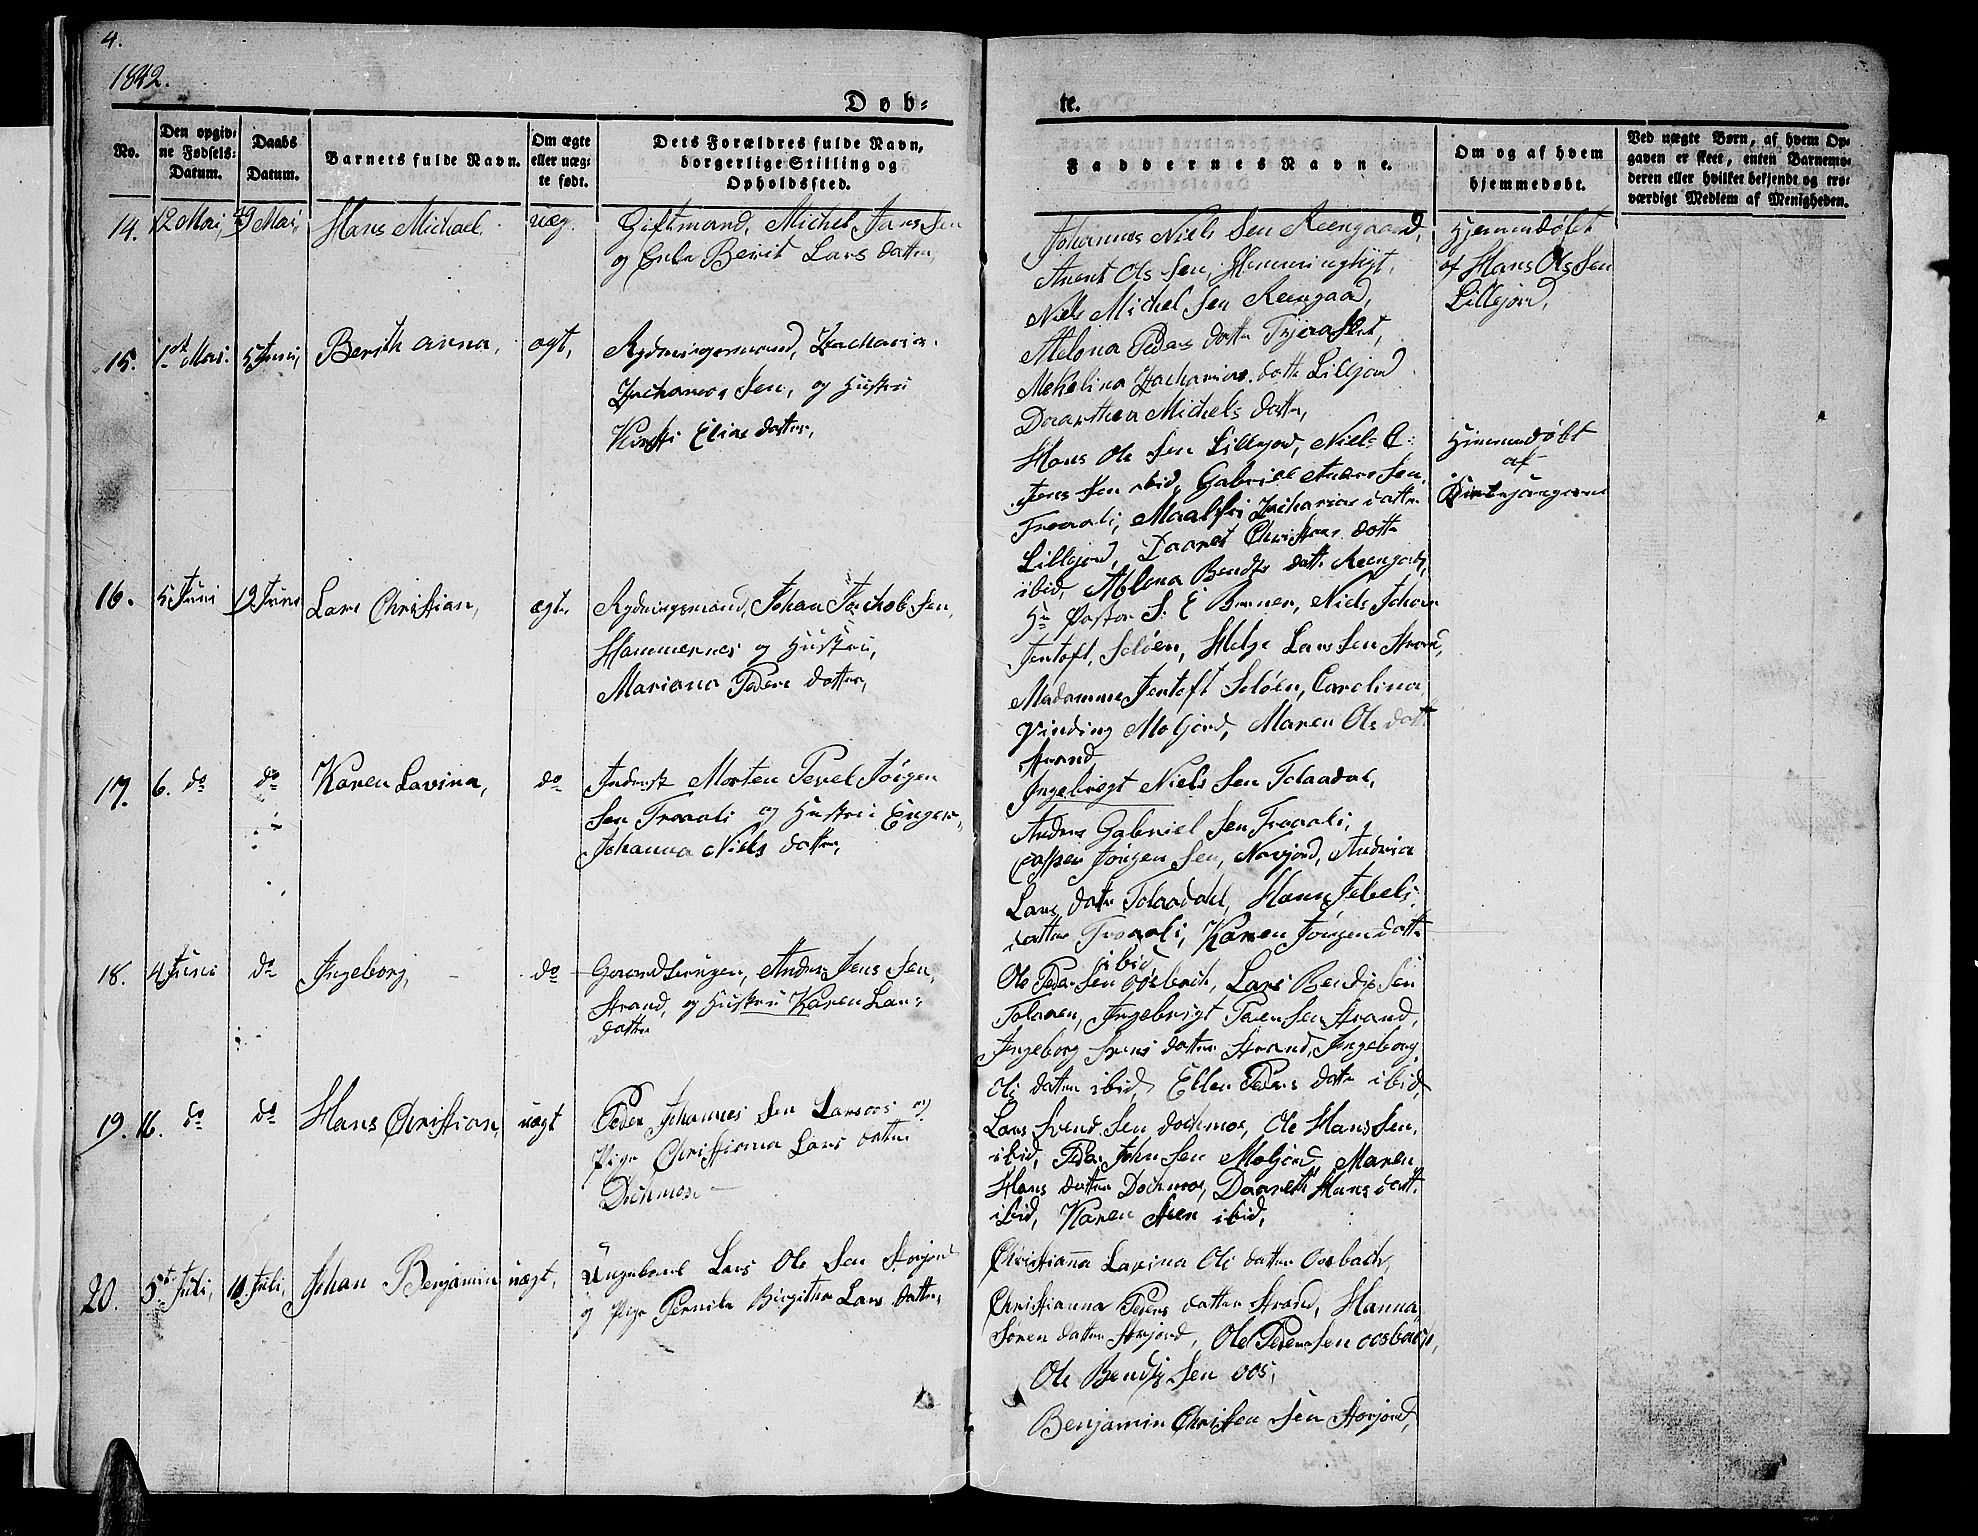 4.
1842.
Døb-
te.
No.
Den opgiv-
ne Fødsels-
Datum.
Daabs
Datum.
Barnets fulde Navn.
Om ægte
eller uæg-
te født.
Dets Forældres fulde Navn,
borgerlige Stilling og
Opholdssted.
Faddernes Navne.
Om og af hvem
hjemmedøbt.
Ved uægte Børn, af hvem Op-
gaven er skeet, enten Barnemo-
deren eller hvilket bekjendt og tro-
værdigt Medlem af Menigheden.
14. 12 Mai, 29 Mai, Hans Michael uæg.
Giftmand, Michel Jans Sen
og Enke Berit Lars datter,
Johannes Niels Sen Reengaard,
Arent Ols Sen,
Niels Michel Sen Reengaard,
Helena Peders datter
Mekelina Zacharias datte Lillejord
Daarthea Michels datter,
Hjemmedøbt
af Hans Ols Sen
Lillejord,
15. 1st Mai. 5 Juni, Berith Anna, ægt,
Rydningsmand, Zacharia-
Zacharias Sen, og Hustru
Kirsti Elias datter,
Hans Ole Sen Lillejord, Niels
Jens Sen ibid, Gabriel Anders Sen,
Troaali, Maalfri Zacharias datter
Lillejord, Daaret Christens datter
ibid, Helena Bendts datt. Reengard,
Hjemmedøbt
af
16. 5 Juni 19 Juni Lars Christian, ægte
Rydningsmand, Johan Jachob Sen,
Hammernes og Hustru,
Mariana Peders datter,
Hr Pastor S. E. Niels Johan
Jentoft, Soløen, Helge Lars Sen Strand,
Madamme Jentoft Soløen, Carolina
Vinding Moljord, Maren Ols datt
Strand
17. 6. do do Karen Lavina, do
Inderst Morten Pevel Jørgen
Sen Troaali og Hustru Inger
Johanna Niels datter,
Ingebregt Niels Sen Tolaadal,
Anders Gabriel Sen Troaali,
Casper Jørgen Sen, Navjord, Andrea
Lars datter Tolaadal, Hans Jebels
datter Troaali, Karen Jørgen datte
ibid
18. 4 Juni do Ingeborg, do
Gaardbruger, Anders Jens Sen,
Strand, og Hustru Karen Lars
datter
Ole Peder Sen Oosbach, Lars Bendix Sen
Tolanen, Ingebrigt Peder Sen Strand,
Ingeborg Svens datter Strand, Ingeborg
Ols datter ibid, Ellen Peders datter ibid,
19. 16. do do Hans Christian, uægt
Peder Johannes Sen Larsoos og
Pige Christianna Lars datter
Dochmoe
Lars Svend Sen Dochmoe, Ole Hans Sen,
ibid, Peder John Sen Moljord, Maren
Hans datter Dochmoe, Daareth Hans datt.
ibid, Karen Steen ibid,
20. 5te Juli, 10. Juli, Johan Benjamin uægt,
Ungekarl Lars Ole Sen Storjord
og Pige Pernila Birgitha Lars datter,
Christianna Lavina Ols datter Oosbach,
Christianna Peders datter Strand, Hanna
Søren datter Storjord, Ole Peder Sen oosbach,
Ole Bendix Sen oos,
Benjamin Christen Sen Storjord,